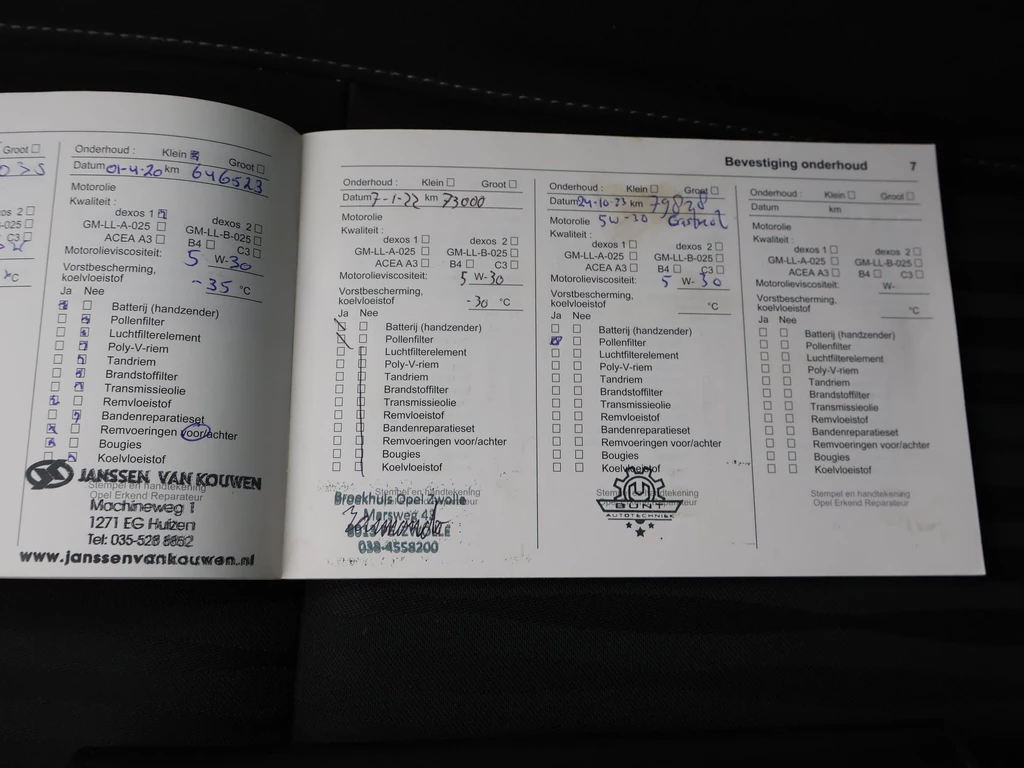 Groot
Onderhoud : Klein Groot
Datum 01-4-20 km
Motorolie
Kwaliteit :
dexos 1 dexos 2
GM-LL-A-025 GM-LL-B-025
ACEA A3 B4 C3
Motorolieviscositeit: 5 W-30
Vorstbescherming,
koelvloeistof -35 °C
Ja Nee
Batterij (handzender)
Pollenfilter
Luchtfilterelement
Poly-V-riem
Tandriem
Brandstoffilter
Transmissieolie
Remvloeistof
Bandenreparatieset
Remvoeringen voor/achter
Bougies
Koelvloeistof
JANSSEN VAN KOUWEN
Stempel en handtekening
Opel Erkend Reparateur
Machineweg 1
1271 EG Huizen
www.janssenvankouwen.nl
Bevestiging onderhoud 7
Onderhoud : Klein Groot
Datum 7-1-22 km 73000
Motorolie
Kwaliteit :
dexos 1 dexos 2
GM-LL-A-025 GM-LL-B-025
ACEA A3 B4 C3
Motorolieviscositeit: 5 W-30
Vorstbescherming,
koelvloeistof -30 °C
Ja Nee
Batterij (handzender)
Pollenfilter
Luchtfilterelement
Poly-V-riem
Tandriem
Brandstoffilter
Transmissieolie
Remvloeistof
Bandenreparatieset
Remvoeringen voor/achter
Bougies
Koelvloeistof
Stempel en handtekening
Broekhuis Opel Zwolle
Marsweg 43
038-4558200
Onderhoud : Klein Groot
Datum 24-10-23 km 79828
Motorolie 5W-30 Castrol
Kwaliteit :
dexos 1 dexos 2
GM-LL-A-025 GM-LL-B-025
ACEA A3 B4 C3
Motorolieviscositeit: 5 W-30
Vorstbescherming,
koelvloeistof °C
Ja Nee
Batterij (handzender)
Pollenfilter
Luchtfilterelement
Poly-V-riem
Tandriem
Brandstoffilter
Transmissieolie
Remvloeistof
Bandenreparatieset
Remvoeringen voor/achter
Bougies
Koelvloeistof
BUNT
AUTOTECHNIEK
Onderhoud : Klein Groot
Datum km
Motorolie
Kwaliteit :
dexos 1 dexos 2
GM-LL-A-025 GM-LL-B-025
ACEA A3 B4 C3
Motorolieviscositeit: W-
Vorstbescherming,
koelvloeistof °C
Ja Nee
Batterij (handzender)
Pollenfilter
Luchtfilterelement
Poly-V-riem
Tandriem
Brandstoffilter
Transmissieolie
Remvloeistof
Bandenreparatieset
Remvoeringen voor/achter
Bougies
Koelvloeistof
Stempel en handtekening
Opel Erkend Reparateur